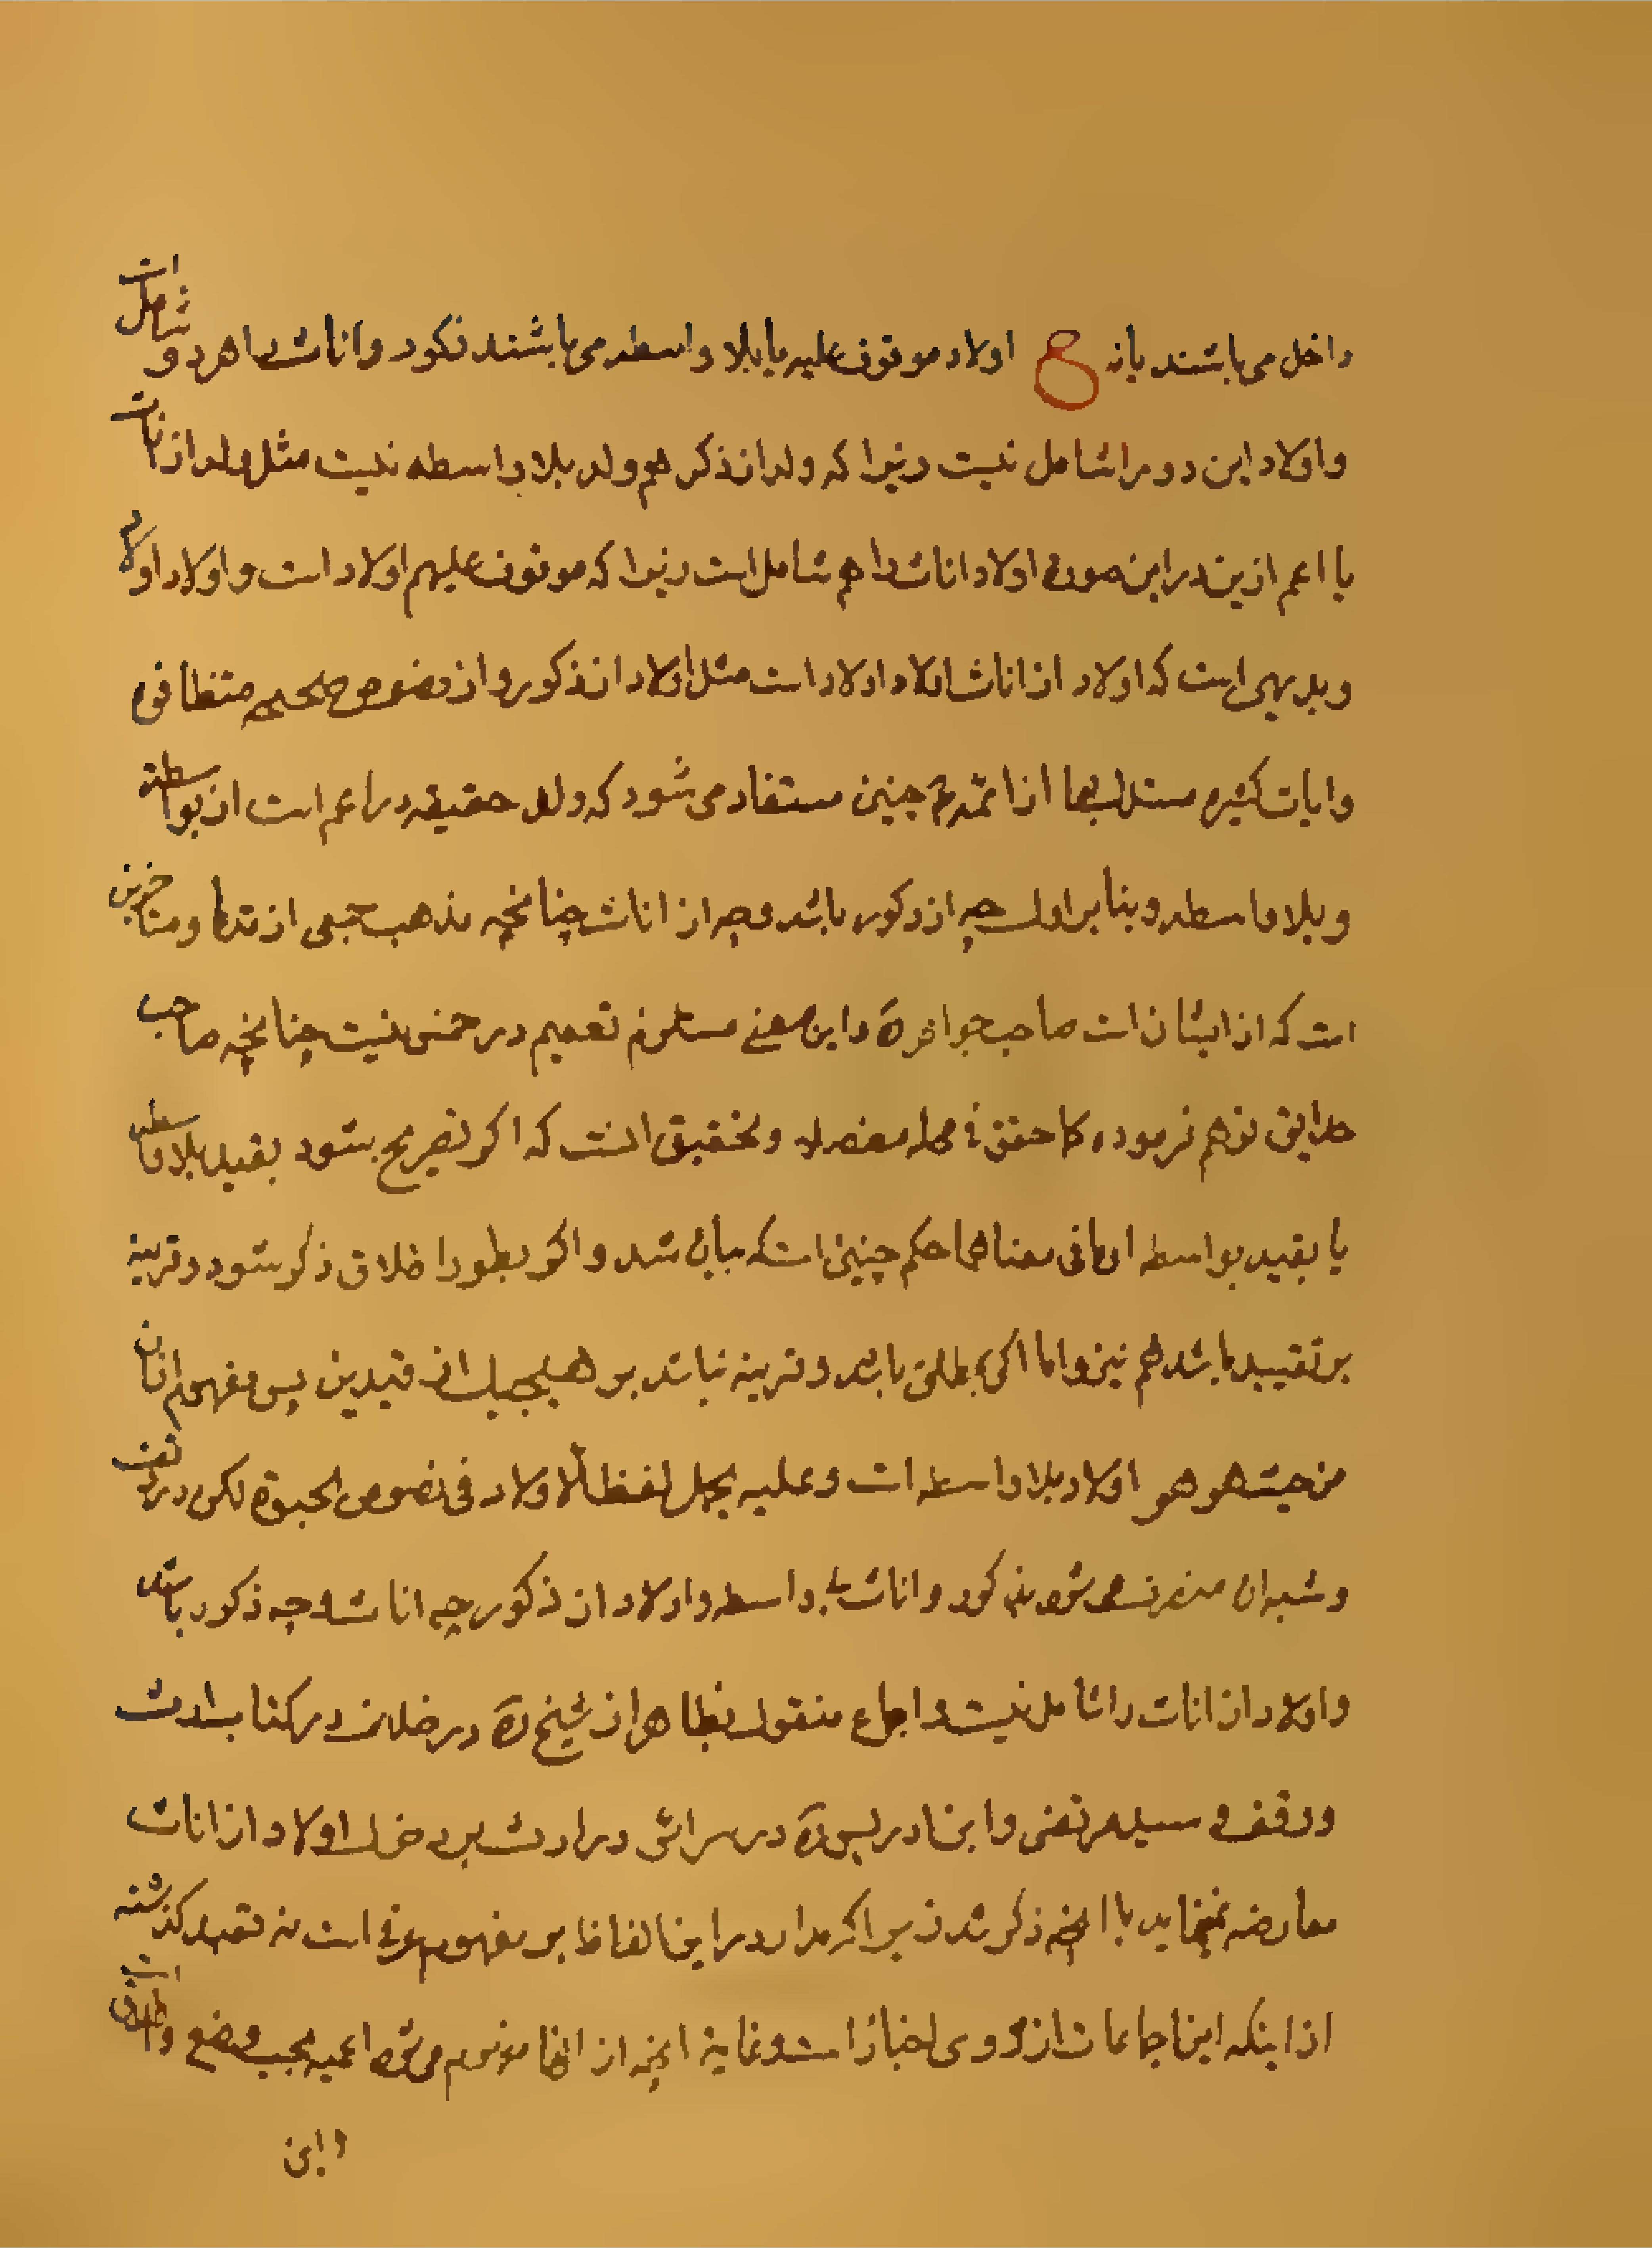 داخل می‌باشند یا نه ج اولاد موقوف علیه یا بلا واسطه می‌باشند ذکور و اناث را هر دو شامل است
و اولاد این دو را شامل نیست زیرا که ولد از ذکر هم ولد بلا واسطه نیست مثل ولد از اناث
یا اعم ازین در این صورة اولاد اناث را هم شامل است زیرا که موقوف علیهم اولاد است و اولاد اولاد
و بدیهی است که اولاد از اناث اولاد اولاد است مثل اولاد از ذکور و از نصوص صحیحه متظافره
و ایات کثیره مستدل بها از ائمه ع چنین مستفاد می‌شود که ولد حقیقه در اعم است از بواسطه
و بلا واسطه و بنابر اول چه از ذکور باشد و چه از اناث چنانچه مذهب جمعی از قدما و متاخرین
است که از ایشان است صاحب جواهر ره و این معنی مستلزم تعمیم در خمس نیست چنانچه صاحب
حدایق توهم فرموده کما حقق فی محله مفصلا و تحقیق انست که اکر تصریح بشود بقید بلا واسطه
یا بقید بواسطه او ما فی معناهما حکم چنین است که بیان شد و اکر بطور اطلاق ذکر شود و قرینه
بر تقیید باشد هم نیز و اما اکر مطلق باشد و قرینه نباشد بر هیچیک از قیدین پس مفهوم از ان
من حیث هو هو اولاد بلا واسطه است و علیه یحمل لفظ الاولاد فی نصوص الحبوة لکن در وقف
و شبه ان منصرف می‌شود بذکور و اناث بلا واسطه و اولاد از ذکور چه اناث و چه ذکور باشد
و اولاد از اناث را شامل نیست و اجماع منقول بظاهر از شیخ ره در خلاف در کتاب ارث
و وقف و سید مرتضی و ابن ادریس ره در سرائر در ارث بر دخول اولاد از اناث
معارضه نمینماید با انچه ذکر شد زیرا که مدار در این الفاظ بر مفهوم عرفی است نه تقیید کذشته
از اینکه این اجماعات از روی اخبار است و غایة انچه از انها مفهوم می‌شود اعمیه بحسب وضع و اطلاق است
و ابن